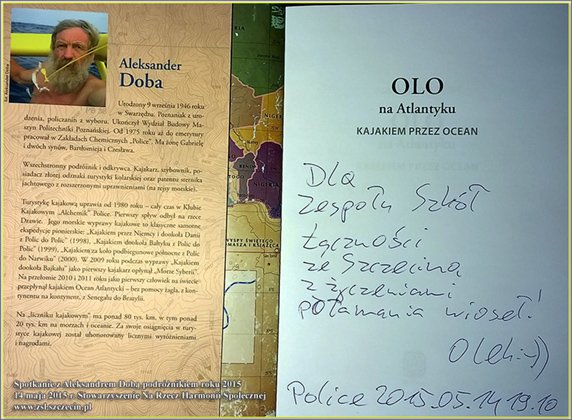 Aleksander
Doba
Urodzony 9 września 1946 roku
w Swarzędzu. Poznaniak z uro-
dzenia, policzanin z wyboru. Ukończył Wydział Budowy Ma-
szyn Politechniki Poznańskiej. Od 1975 roku aż do emerytury
pracował w Zakładach Chemicznych „Police”. Ma żonę Gabrielę
i dwóch synów, Bartłomieja i Czesława.
Wszechstronny podróżnik i odkrywca. Kajakarz, szybownik, po-
siadacz złotej odznaki turystyki kolarskiej oraz patentu sternika
jachtowego z rozszerzonymi uprawnieniami (na rejsy morskie).
Turystykę kajakową uprawia od 1980 roku – cały czas w Klubie
Kajakowym „Alchemik” Police. Pierwszy spływ odbył na rzece
Drawie. Jego morskie wyprawy kajakowe to klasyczne samotne
ekspedycje pionierskie: „Kajakiem przez Niemcy i dookoła Danii
z Polic do Polic” (1998), „Kajakiem dookoła Bałtyku z Polic do
Polic” (1999), „Kajakiem za koło podbiegunowe północne z Polic
do Narwiku” (2000). W 2009 roku podczas wyprawy „Kajakiem
dookoła Bajkału” jako pierwszy kajakarz opłynął „Morze Syberii”.
Na przełomie 2010 i 2011 roku jako pierwszy człowiek na świecie
przepłynął kajakiem Ocean Atlantycki – bez pomocy żagla, z kon-
tynentu na kontynent, z Senegalu do Brazylii.
Na „liczniku kajakowym” ma ponad 80 tys. km, w tym ponad
20 tys. km na morzach i oceanie. Za swoje osiągnięcia w tury-
styce kajakowej został uhonorowany licznymi wyróżnieniami
i nagrodami.
Spotkanie z Aleksandrem Dobą podróżnikiem roku 2015
14 maja 2015 r. Stowarzyszenie Na Rzecz Harmonii Społecznej
www.zsl.szczecin.pl
NIGERIA
OLO
na Atlantyku
KAJAKIEM PRZEZ OCEAN
Dla
Zespołu Szkół
Łączności
ze Szczecina
z życzeniami
połamania wioseł!
Olek :-))
Police 2015.05.14 19.10